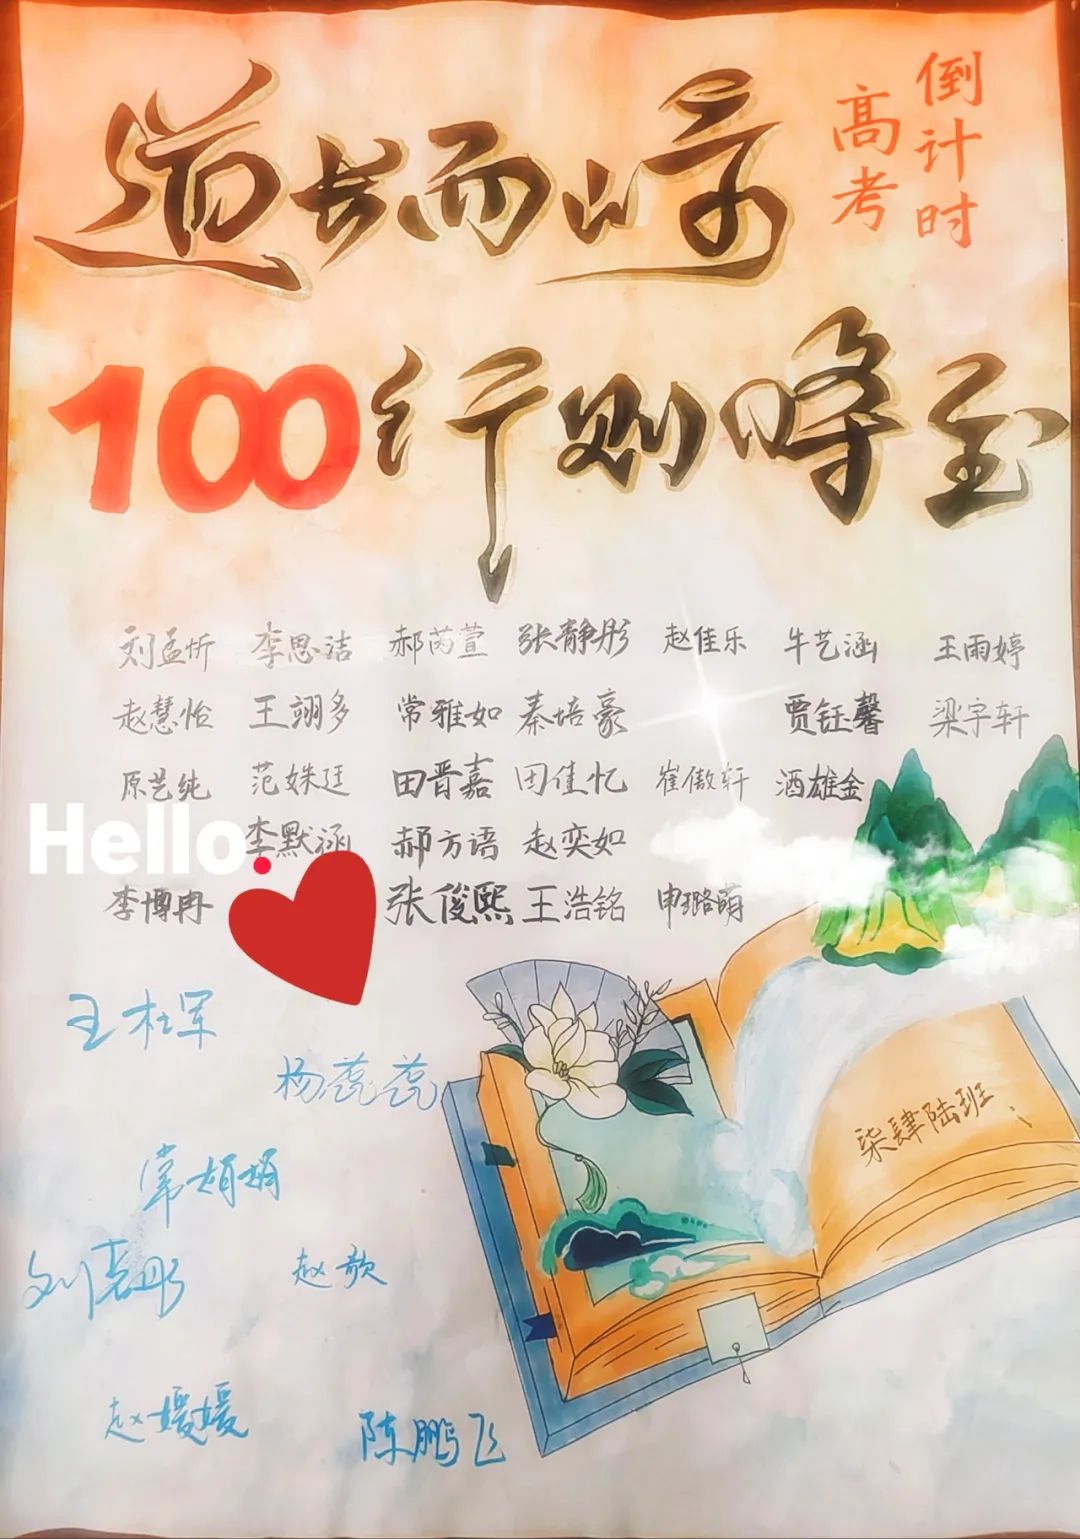 倒计时
高考
道长而崎
100 行则峰至
刘孟忻 李思洁 郝芮萱 张静彤 赵佳乐 牛艺涵 王雨婷
赵慧怡 王翊多 常雅如 秦培豪 贾钰馨 梁宇轩
原艺纯 范姝廷 田晋嘉 田佳忆 崔傲轩 酒雄金
Hello. 李默涵 郝方语 赵奕如
李博冉 张俊熙 王浩铭 申璐萌
王杜军
杨蕊蕊
柒肆陆班
常娟娟
刘志彤
赵歆
赵媛媛
陈鹏飞